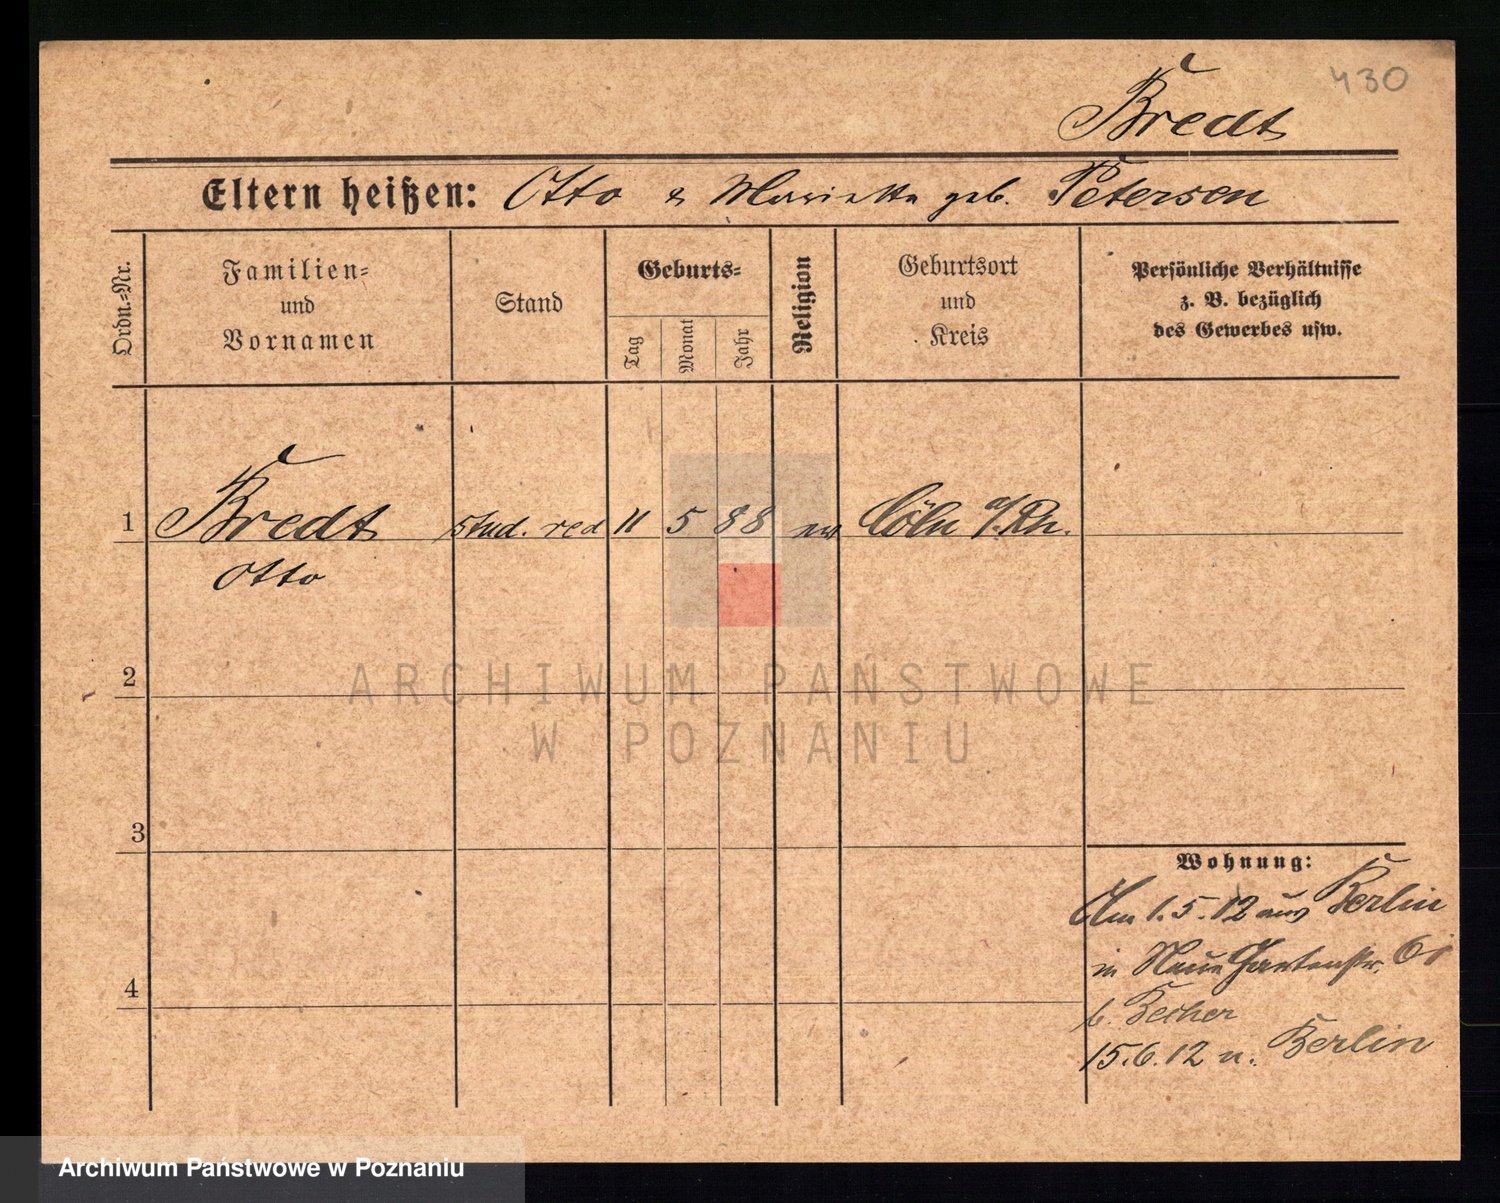 430
Bredt
Eltern heißen: Otto & Marietta geb. Petersen
Ordn.=Nr.
Familien=
und
Vornamen
Stand
Geburts=
Tag
Monat
Jahr
Religion
Geburtsort
und
Kreis
Persönliche Verhältnisse
z. B. bezüglich
des Gewerbes usw.
1 Bredt stud. red 11 5 88 ev Cöln a/Rh.
Otto
2
ARCHIWUM PAŃSTWOWE
W POZNANIU
3
4
Wohnung:
Am 1.5.12 aus Berlin
in Neue Gartenstr.
b. Becher
15.6.12 n. Berlin
Archiwum Państwowe w Poznaniu